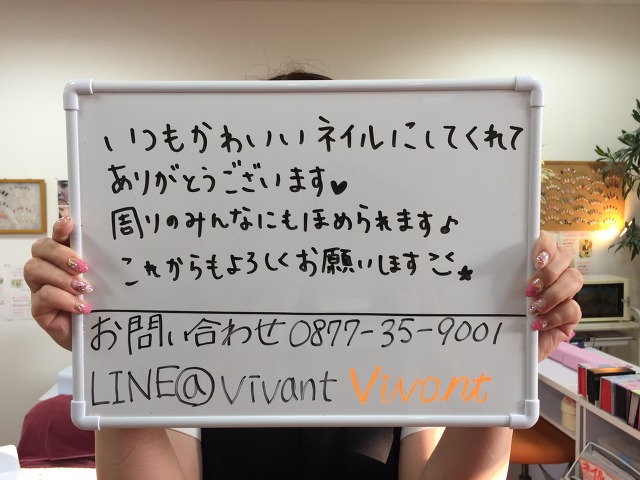 いつもかわいいネイルにしてくれて
ありがとうございます♥
周りのみんなにもほめられます♪
これからもよろしくお願いします
お問い合わせ 0877-35-9001
LINE@Vivant Vivant
ネイル